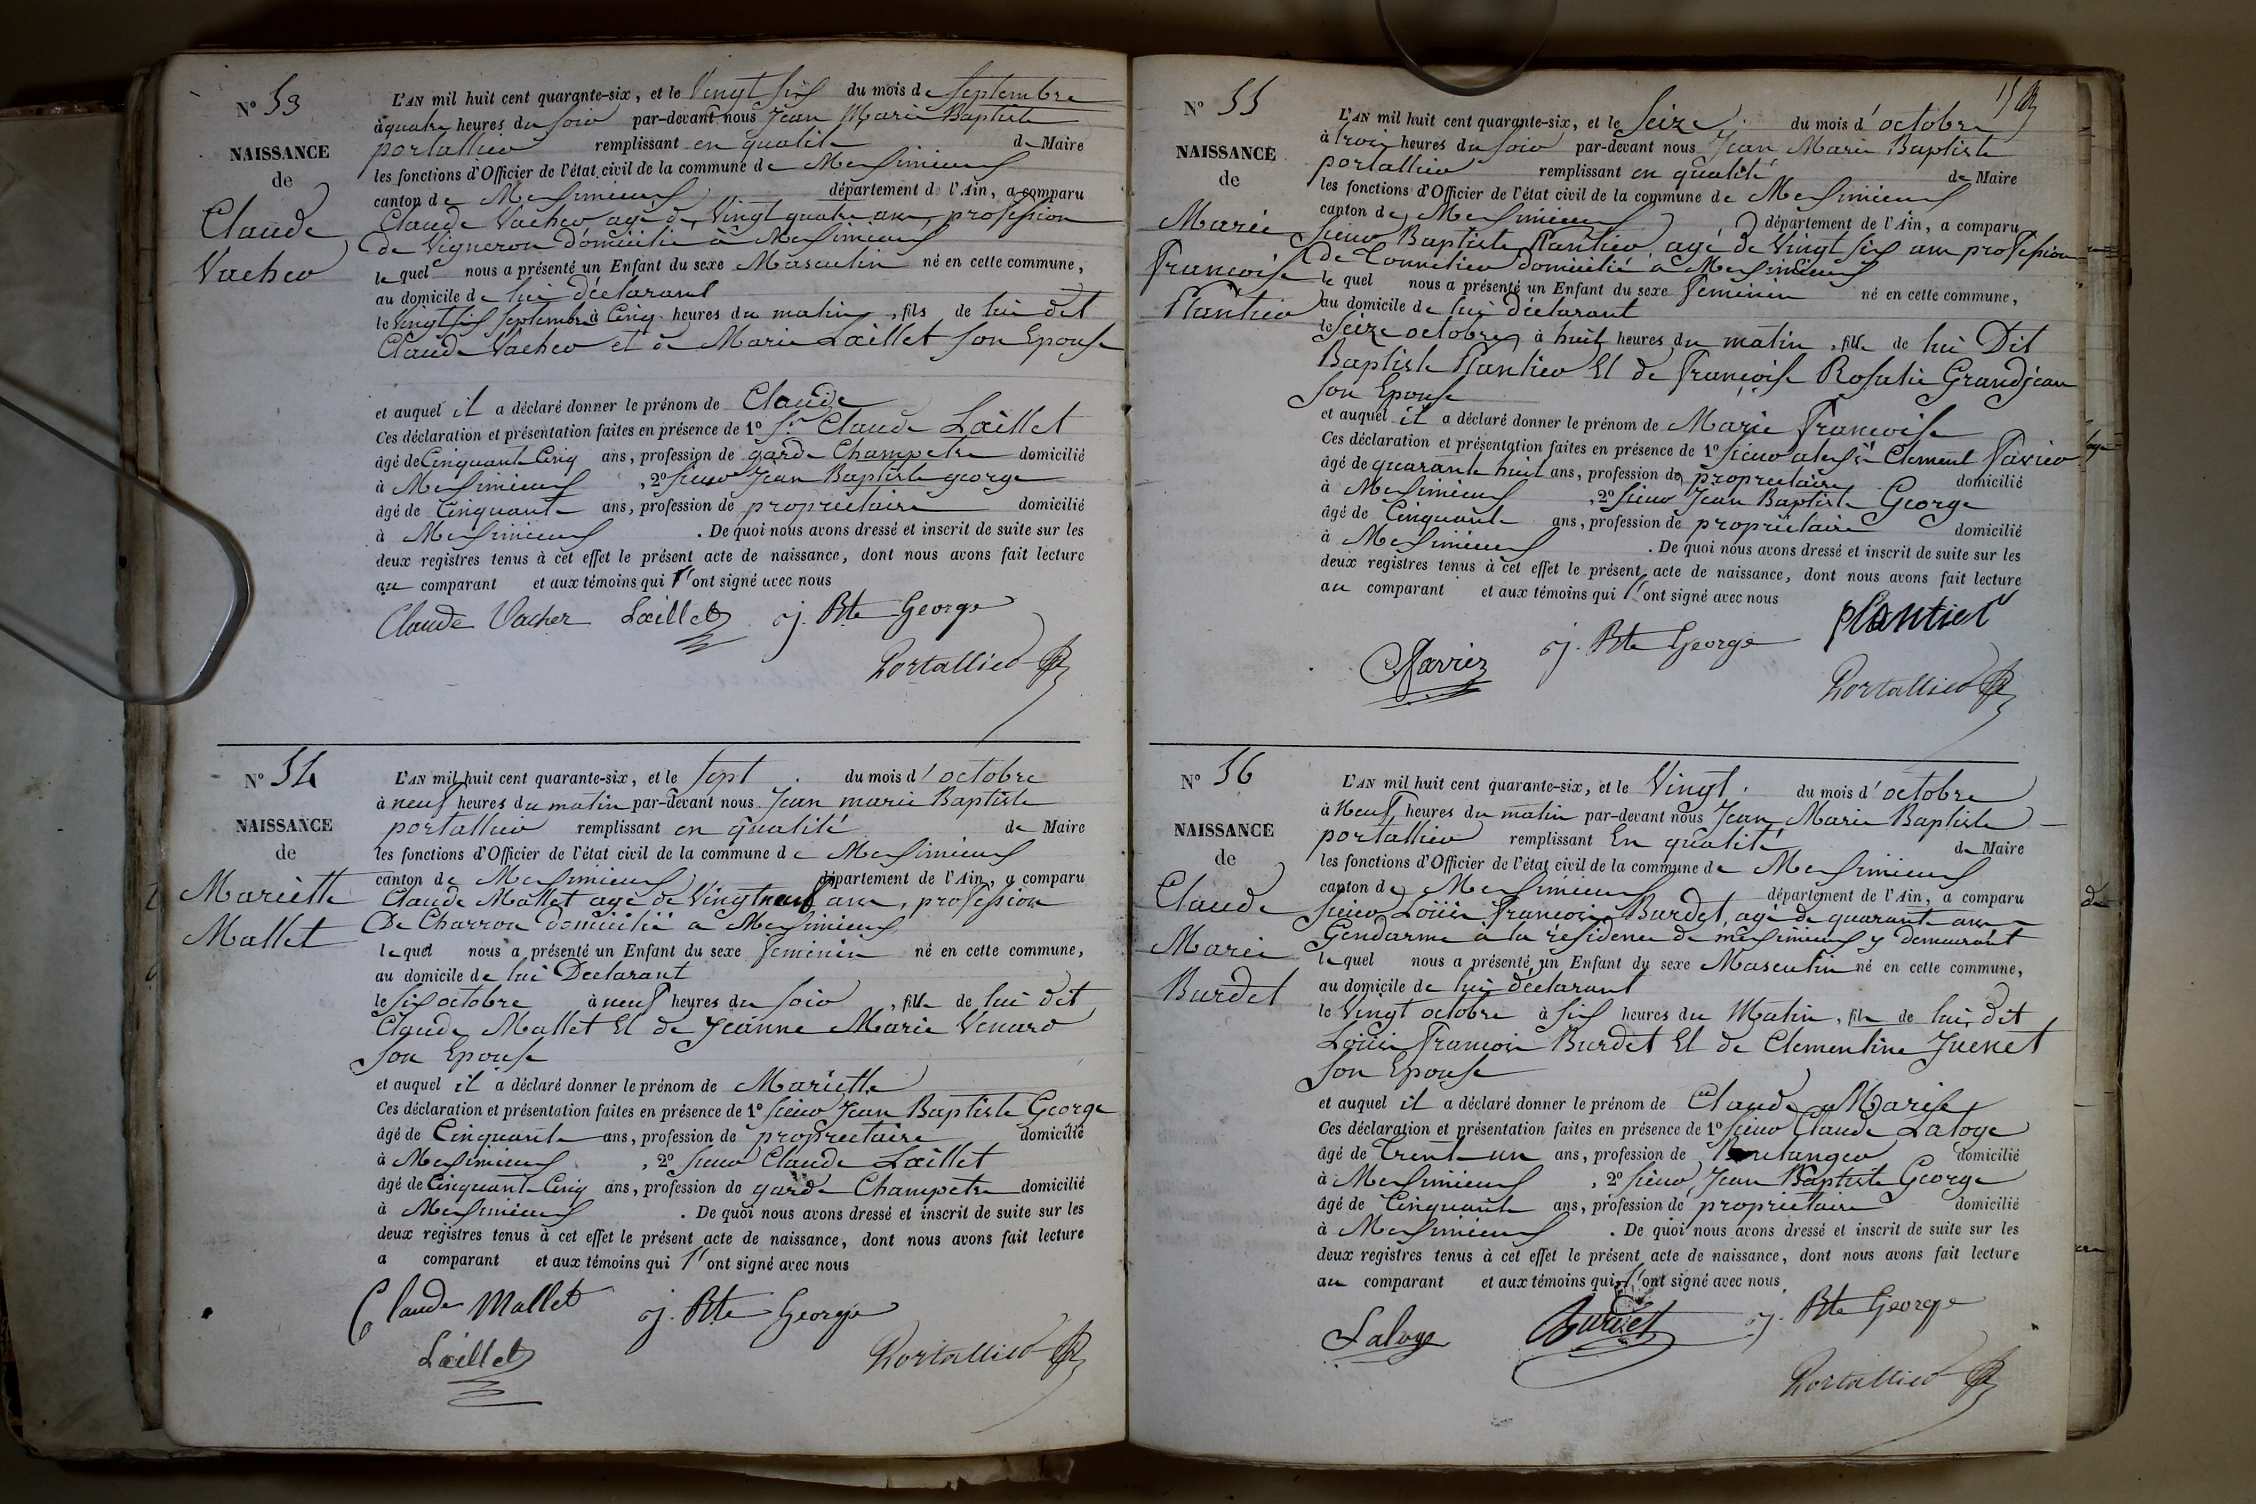 N° 53
NAISSANCE
de
Claude
Vacher
L'AN mil huit cent quarante-six, et le Vingt six du mois de Septembre
à quatre heures du soir par-devant nous Jean Marie Baptiste
portallier remplissant en qualité de Maire
les fonctions d'Officier de l'état civil de la commune de Messimieux
canton de Messimieux département de l'Ain, a comparu
Claude Vacher agé de Vingt quatre ans, profession
de Vigneron domicilié à Messimieux
lequel nous a présenté un Enfant du sexe Masculin né en cette commune,
au domicile de lui déclarant
le Vingt six Septembre à Cinq heures du matin, fils de lui dit
Claude Vacher et de Marie Laillet son Epouse
et auquel il a déclaré donner le prénom de Claude
Ces déclaration et présentation faites en présence de 1° Sr Claude Laillet
âgé de Cinquante Cinq ans, profession de garde Champetre domicilié
à Messimieux, 2° sieur Jean Baptiste george
âgé de Cinquante ans, profession de proprietaire domicilié
à Messimieux. De quoi nous avons dressé et inscrit de suite sur les
deux registres tenus à cet effet le présent acte de naissance, dont nous avons fait lecture
au comparant et aux témoins qui l'ont signé avec nous
Claude Vacher Laillet j. Bte George
Portallier
N° 54
NAISSANCE
de
Mariette
Mallet
L'AN mil huit cent quarante-six, et le sept du mois d'octobre
à neuf heures du matin par-devant nous Jean marie Baptiste
portallier remplissant en qualité de Maire
les fonctions d'Officier de l'état civil de la commune de Messimieux
canton de Messimieux département de l'Ain, a comparu
Claude Mallet agé de Vingt neuf ans, profession
De Charron domicilié à Messimieux
lequel nous a présenté un Enfant du sexe feminin né en cette commune,
au domicile de lui Declarant
le six octobre à neuf heures du soir, fille de lui dit
Claude Mallet Et de Jeanne Marie Venard
son Epouse
et auquel il a déclaré donner le prénom de Mariette
Ces déclaration et présentation faites en présence de 1° sieur Jean Baptiste George
âgé de Cinquante ans, profession de proprietaire domicilié
à Messimieux, 2° sieur Claude Laillet
âgé de Cinquante Cinq ans, profession de garde Champetre domicilié
à Messimieux. De quoi nous avons dressé et inscrit de suite sur les
deux registres tenus à cet effet le présent acte de naissance, dont nous avons fait lecture
a comparant et aux témoins qui l'ont signé avec nous
Claude Mallet j. Bte George
Laillet Portallier
N° 55
NAISSANCE
de
Marie
Francoise
Plantier
L'AN mil huit cent quarante-six, et le Seize du mois d'octobre
à trois heures du soir par-devant nous Jean Marie Baptiste
portallier remplissant en qualité de Maire
les fonctions d'Officier de l'état civil de la commune de Messimieux
canton de Messimieux département de l'Ain, a comparu
sieur Baptiste Plantier agé de Vingt six ans profession
de Tonnelier domicilié à Messimieux
lequel nous a présenté un Enfant du sexe feminin né en cette commune,
au domicile de lui déclarant
le seize octobre à huit heures du matin, fille de lui Dit
Baptiste Plantier Et de Françoise Rosalie Grandjean
son Epouse
et auquel il a déclaré donner le prénom de Marie Francoise
Ces déclaration et présentation faites en présence de 1° sieur Clement
âgé de quarante huit ans, profession de proprietaire domicilié
à Messimieux, 2° sieur Jean Baptiste George
âgé de Cinquante ans, profession de propriétaire domicilié
à Messimieux. De quoi nous avons dressé et inscrit de suite sur les
deux registres tenus à cet effet le présent acte de naissance, dont nous avons fait lecture
au comparant et aux témoins qui l'ont signé avec nous
j. Bte George plantier
Portallier
N° 56
NAISSANCE
de
Claude
Marie
Burdet
L'AN mil huit cent quarante-six, et le Vingt du mois d'octobre
à Neuf heures du matin par-devant nous Jean Marie Baptiste
portallier remplissant En qualité de Maire
les fonctions d'Officier de l'état civil de la commune de Messimieux
canton de Messimieux département de l'Ain, a comparu
sieur Loüis François Burdet, agé de quarante ans
Gendarme à la résidence de messimieux y demeurant
lequel nous a présenté un Enfant du sexe Masculin né en cette commune,
au domicile de lui déclarant
le Vingt octobre à six heures du Matin, fils de lui dit
Loüis Francois Burdet Et de Clementine Juenet
son Epouse
et auquel il a déclaré donner le prénom de Claude Marie
Ces déclaration et présentation faites en présence de 1° sieur Claude Laloge
âgé de Trente un ans, profession de Boulanger domicilié
à Messimieux, 2° sieur Jean Baptiste George
âgé de Cinquante ans, profession de proprietaire domicilié
à Messimieux. De quoi nous avons dressé et inscrit de suite sur les
deux registres tenus à cet effet le présent acte de naissance, dont nous avons fait lecture
au comparant et aux témoins qui l'ont signé avec nous
Laloge Burdet j. Bte George
Portallier